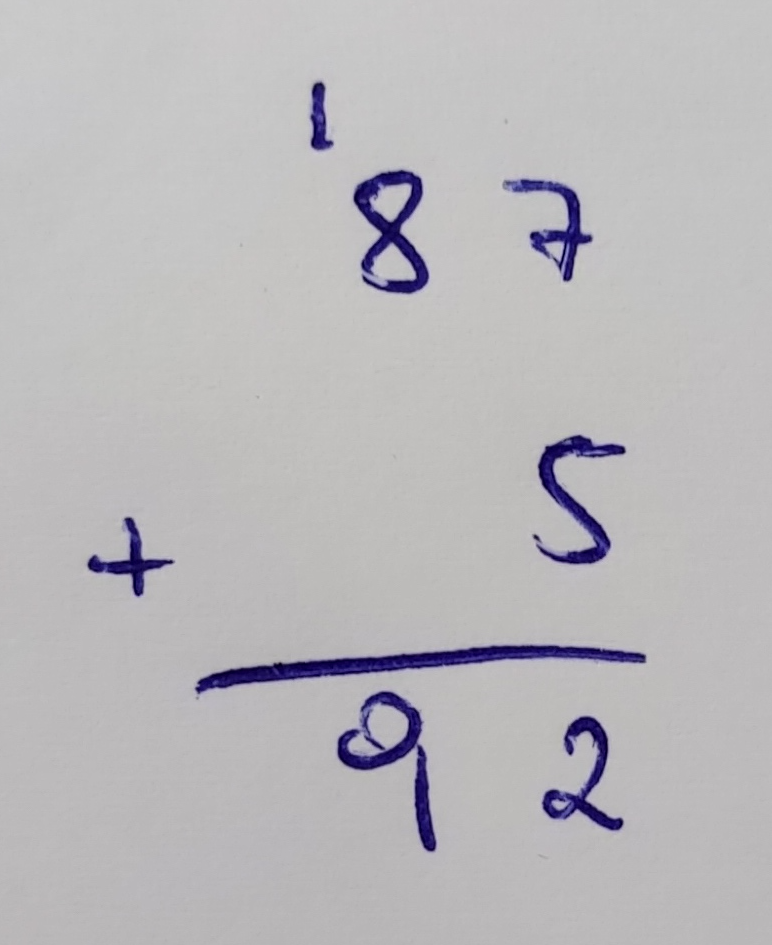 1
87
5
+
92